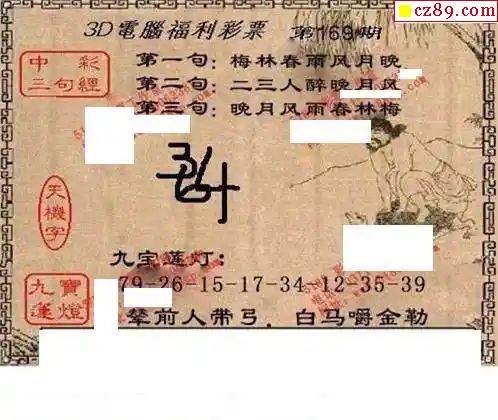 cz89.com
3D電腦福利彩票 第169期
中彩
三句經
第一句：梅林春雨风月晚
第二句：二三人醉晚月风
第三句：晚月风雨春林梅
天機字
九宝莲灯：
79-26-15-17-34-12-35-39
九寶
蓮燈
辇前人带弓．白马嚼金勒